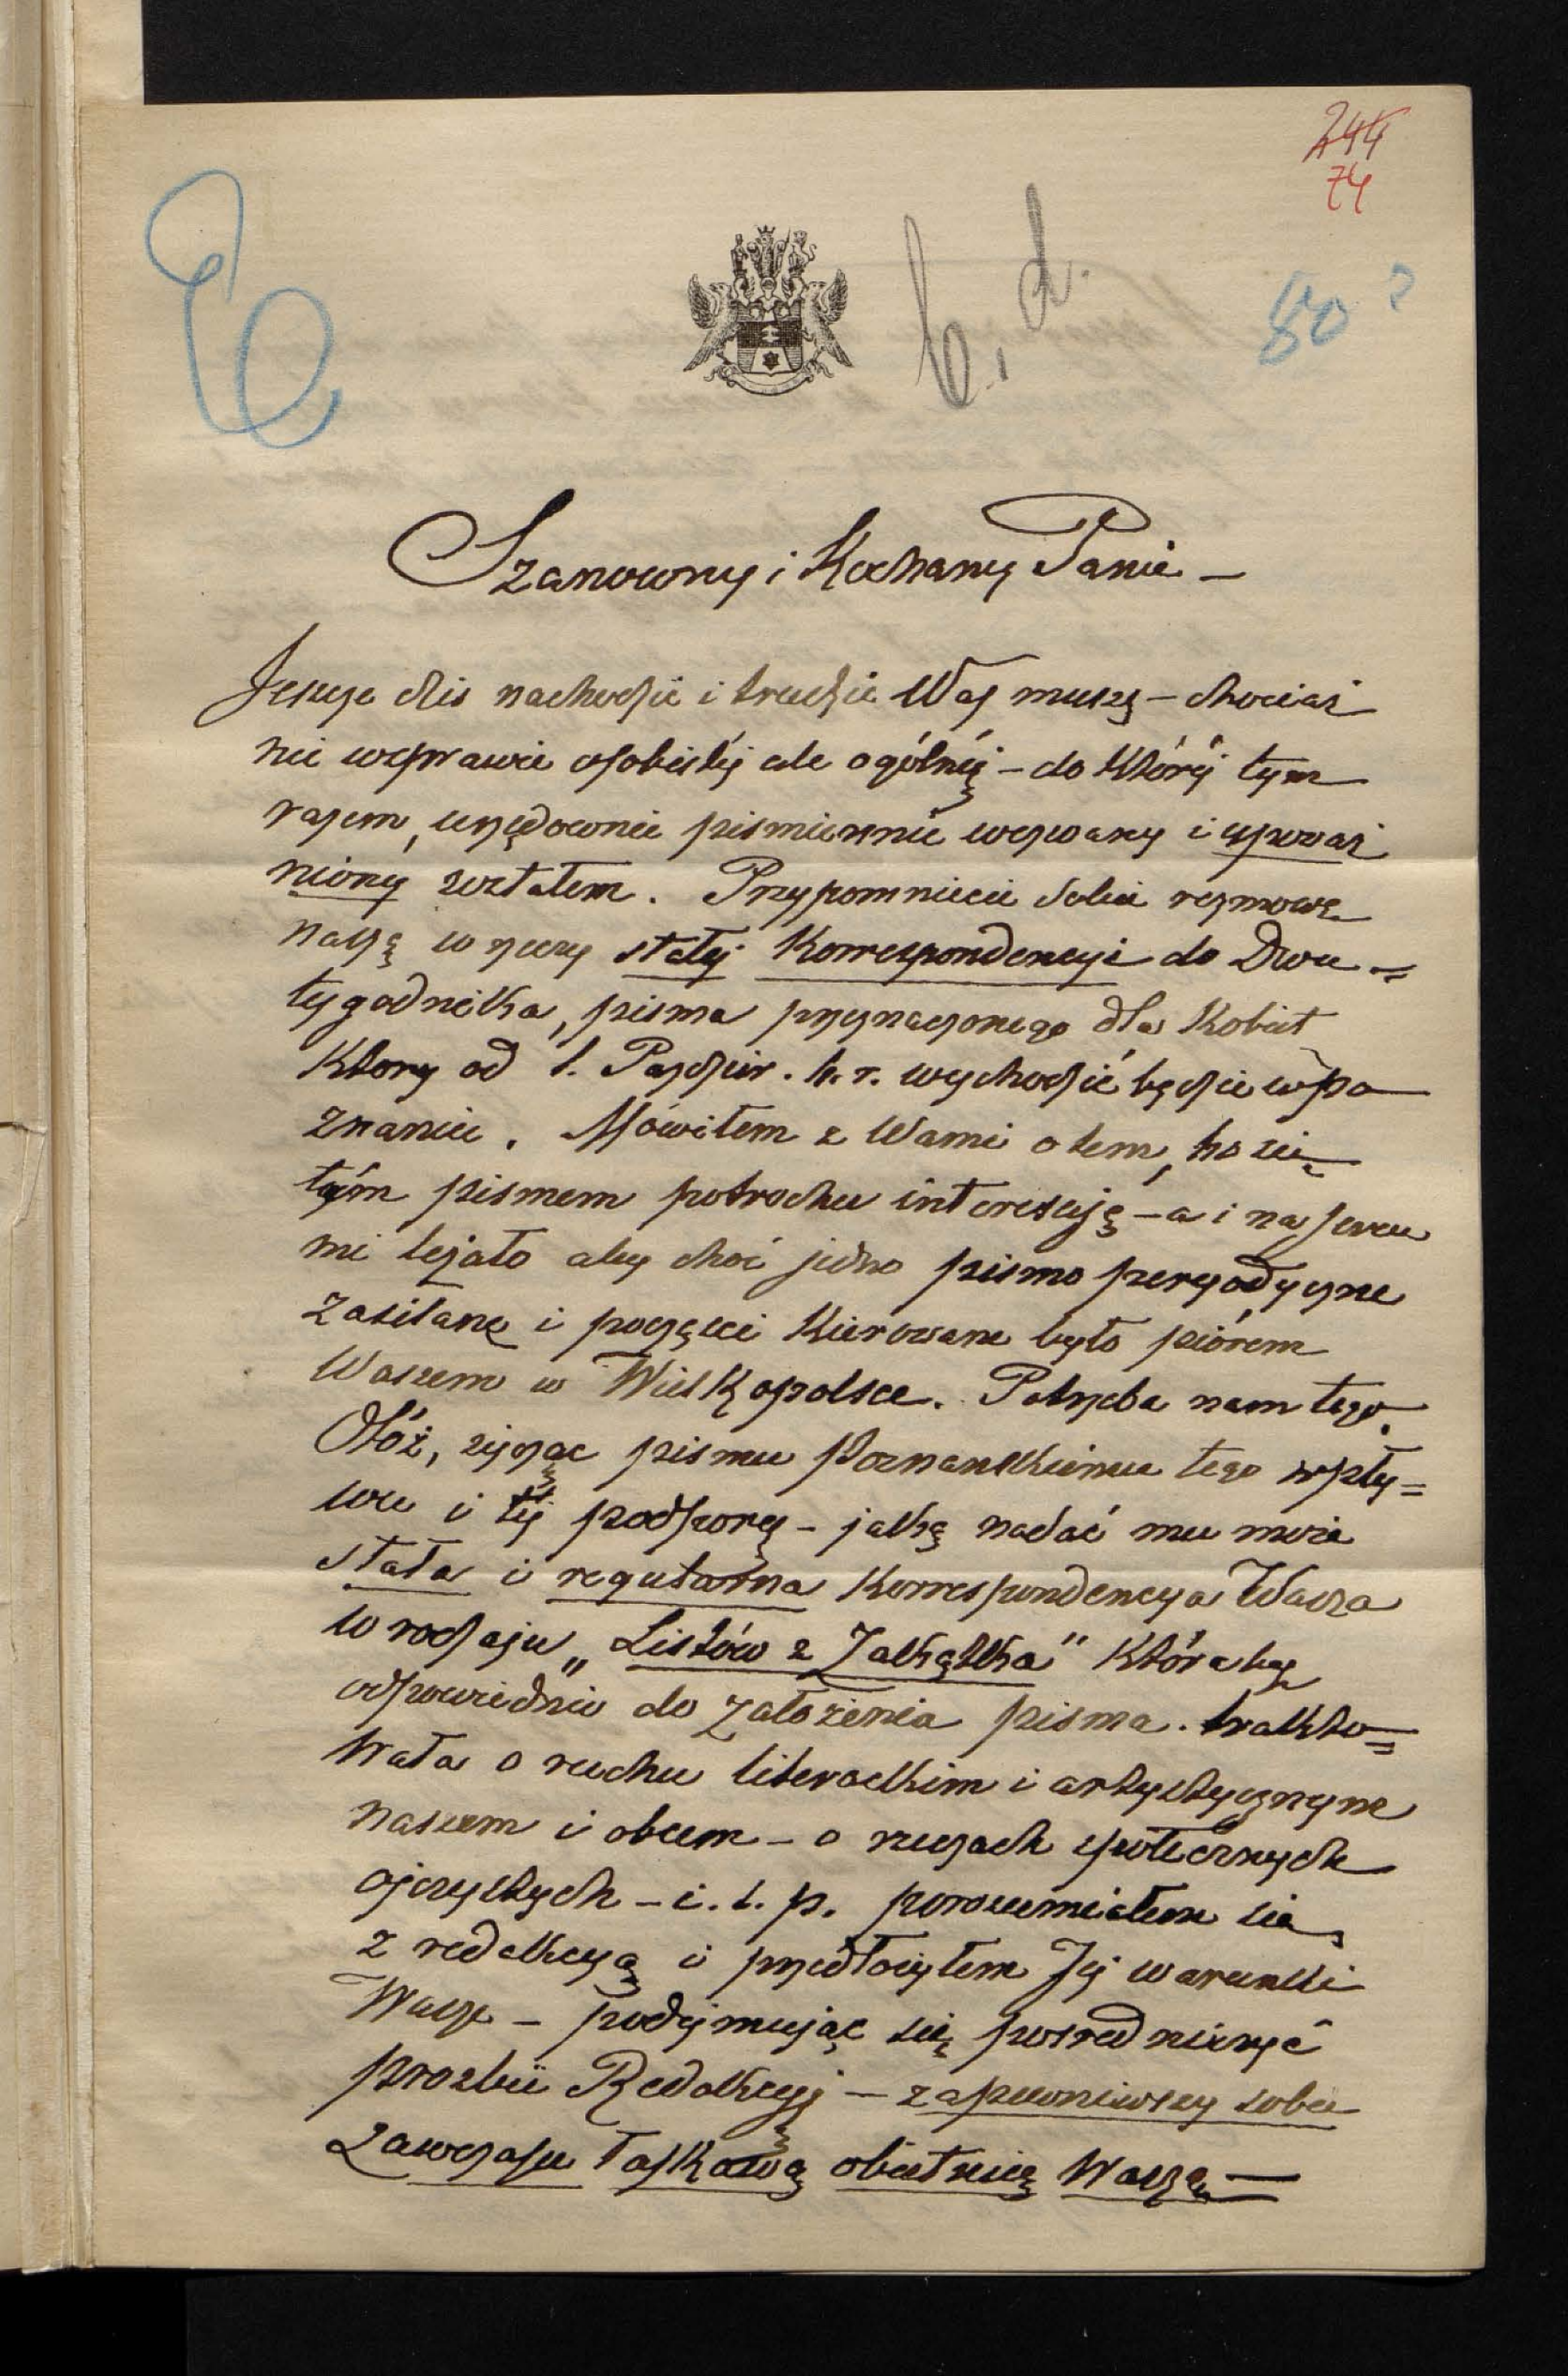 244
74
b. d.
80?
Szanowny i Kochany Panie –
Jeszcze dziś nachodzić i trudzić Was muszę – chociaż
nie w sprawie osobistéj ale ogólnéj – do któréj tym
razem, urzędownie piśmiennie wezwany i upoważ
niony zostałem. Przypomniecie sobie rozmowę
naszę w rzeczy stałéj Korrespondencyi do Dwu=
tygodnika, pisma przeznaczonego dla Kobiet
Który od 1. Paździer. b. r. wychodzić będzie w Po
znaniu. Mówiłem z Wami o tem, bo się
tém pismem potrochu interesuję – a i na sercu
mi leżało aby choć jedno pismo peryodyczne
zasilane i poczęści Kierowane było piórem
Waszem w Wielkopolsce. Potrzeba nam tego.
Otóż, życząc pismu Poznańskiemu tego wpły=
wu i téj podporę – jaką nadać mu może
stała i regularna Korrespondencya Wasza
w rodzaju „Listów z Zakątka" Któraby
odpowiednio do założenia pisma. trakto=
wała o ruchu literackim i artystycznym
naszem i obcem – o rzeczach społecznych
ojczystych – i. t. p. porozumiałem się
z redakcyą i przedłożyłem Jéj warunki
Wasze – podejmując się pośredniczyć
prozbie Redakcyj – zapewniwszy sobie
zawczasu łaskawą obietnicę Waszą –